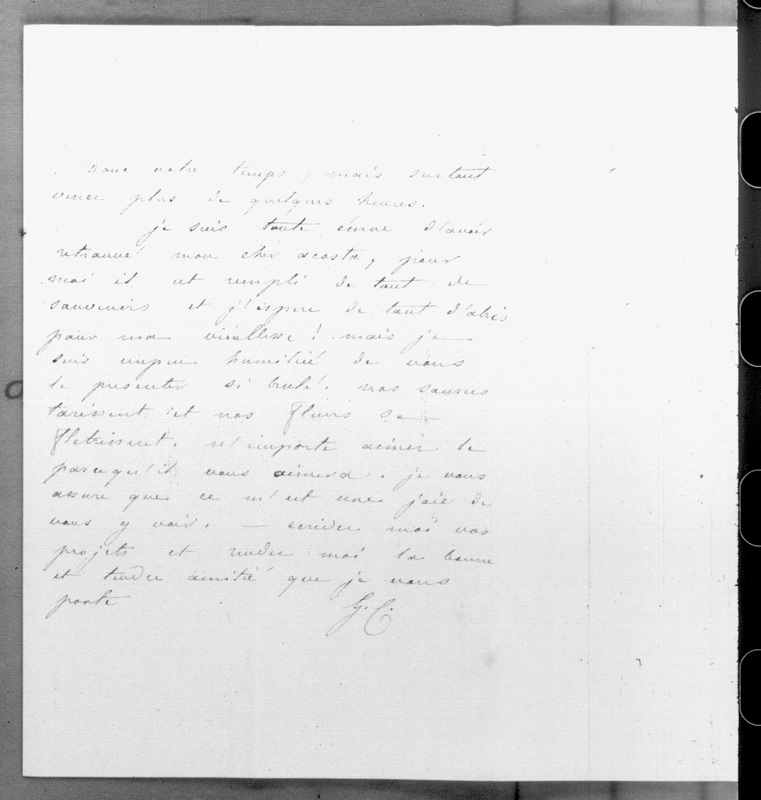 Dans votre temps, mais surtout
venez plus de quelques heures.
je suis toute émue d'avoir
retrouvé mon cher acosta, pour
moi il est rempli de tant de
souvenirs et j'espère de tant d'abris
pour ma vieillesse! mais je
suis unpeu humilié de vous
le presenter si brulé. nos sources
tarissent et nos fleurs se
fletrissent. n'importe aimez le
parcequ'il vous aimera. je vous
assure que ce m'est une joie de
vous y voir. — ecrivez moi vos
projets et rendez moi la bonne
et tendre amitié que je vous
porte
G. C.